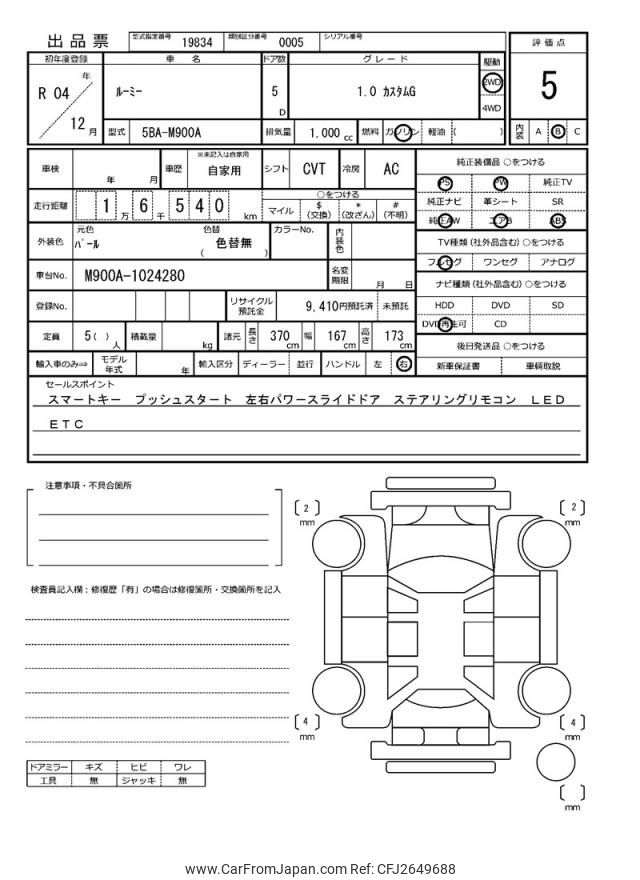 出品票 型式指定番号 19834 類別区分番号 0005 シリアル番号
評価点
5
内装 A B C
初年度登録 車名 ドア数 グレード 駆動
R 04 年 12 月
ルーミー 5 D 1.0 カスタムG 2WD 4WD
型式 5BA-M900A 排気量 1.000 cc 燃料 ガソリン 軽油 ( )
車検 年 月 車歴 ※未記入は自家用 自家用 シフト CVT 冷房 AC
走行距離 1 万 6 千 5 4 0 km
○をつける
マイル $ (交換) * (改ざん) # (不明)
外装色 元色 パール 色替 ( 色替無 ) カラーNo. 内装色
車台No. M900A-1024280 名変期限 月 日
登録No. リサイクル預託金 9,410円預託済 未預託
定員 5 ( ) 人 積載量 kg 諸元 長さ 370 cm 幅 167 cm 高さ 173 cm
輸入車のみ⇒ モデル年式 年 輸入区分 ディーラー 並行 ハンドル 左 右
純正装備品 ○をつける
PS PW 純正TV
純正ナビ 革シート SR
純正AW エアB ABS
TV種類 (社外品含む) ○をつける
フルセグ ワンセグ アナログ
ナビ種類 (社外品含む) ○をつける
HDD DVD SD
DVD再生可 CD
後日発送品 ○をつける
新車保証書 車輌取説
セールスポイント
スマートキー プッシュスタート 左右パワースライドドア ステアリングリモコン LED
ETC
注意事項・不具合箇所
検査員記入欄:修復歴「有」の場合は修復箇所・交換箇所を記入
ドアミラー キズ ヒビ ワレ
工具 無 ジャッキ 無
[2] mm
[2] mm
[4] mm
[4] mm
[ ] mm
www.CarFromJapan.com Ref: CFJ2649688